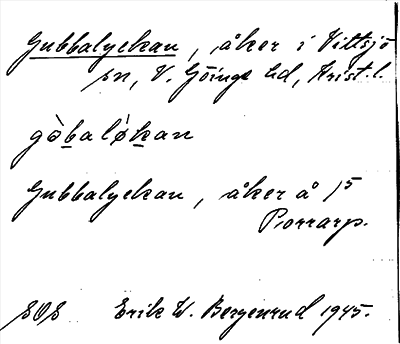 Gubbalyckan, åker i Vittsjö
sn, V. Göinge hd, Krist. l.
gòbaló̷kan
Gubbalyckan, åker å 1⁵
Porrarp.
SOS Erik W. Bergenrud 1945.